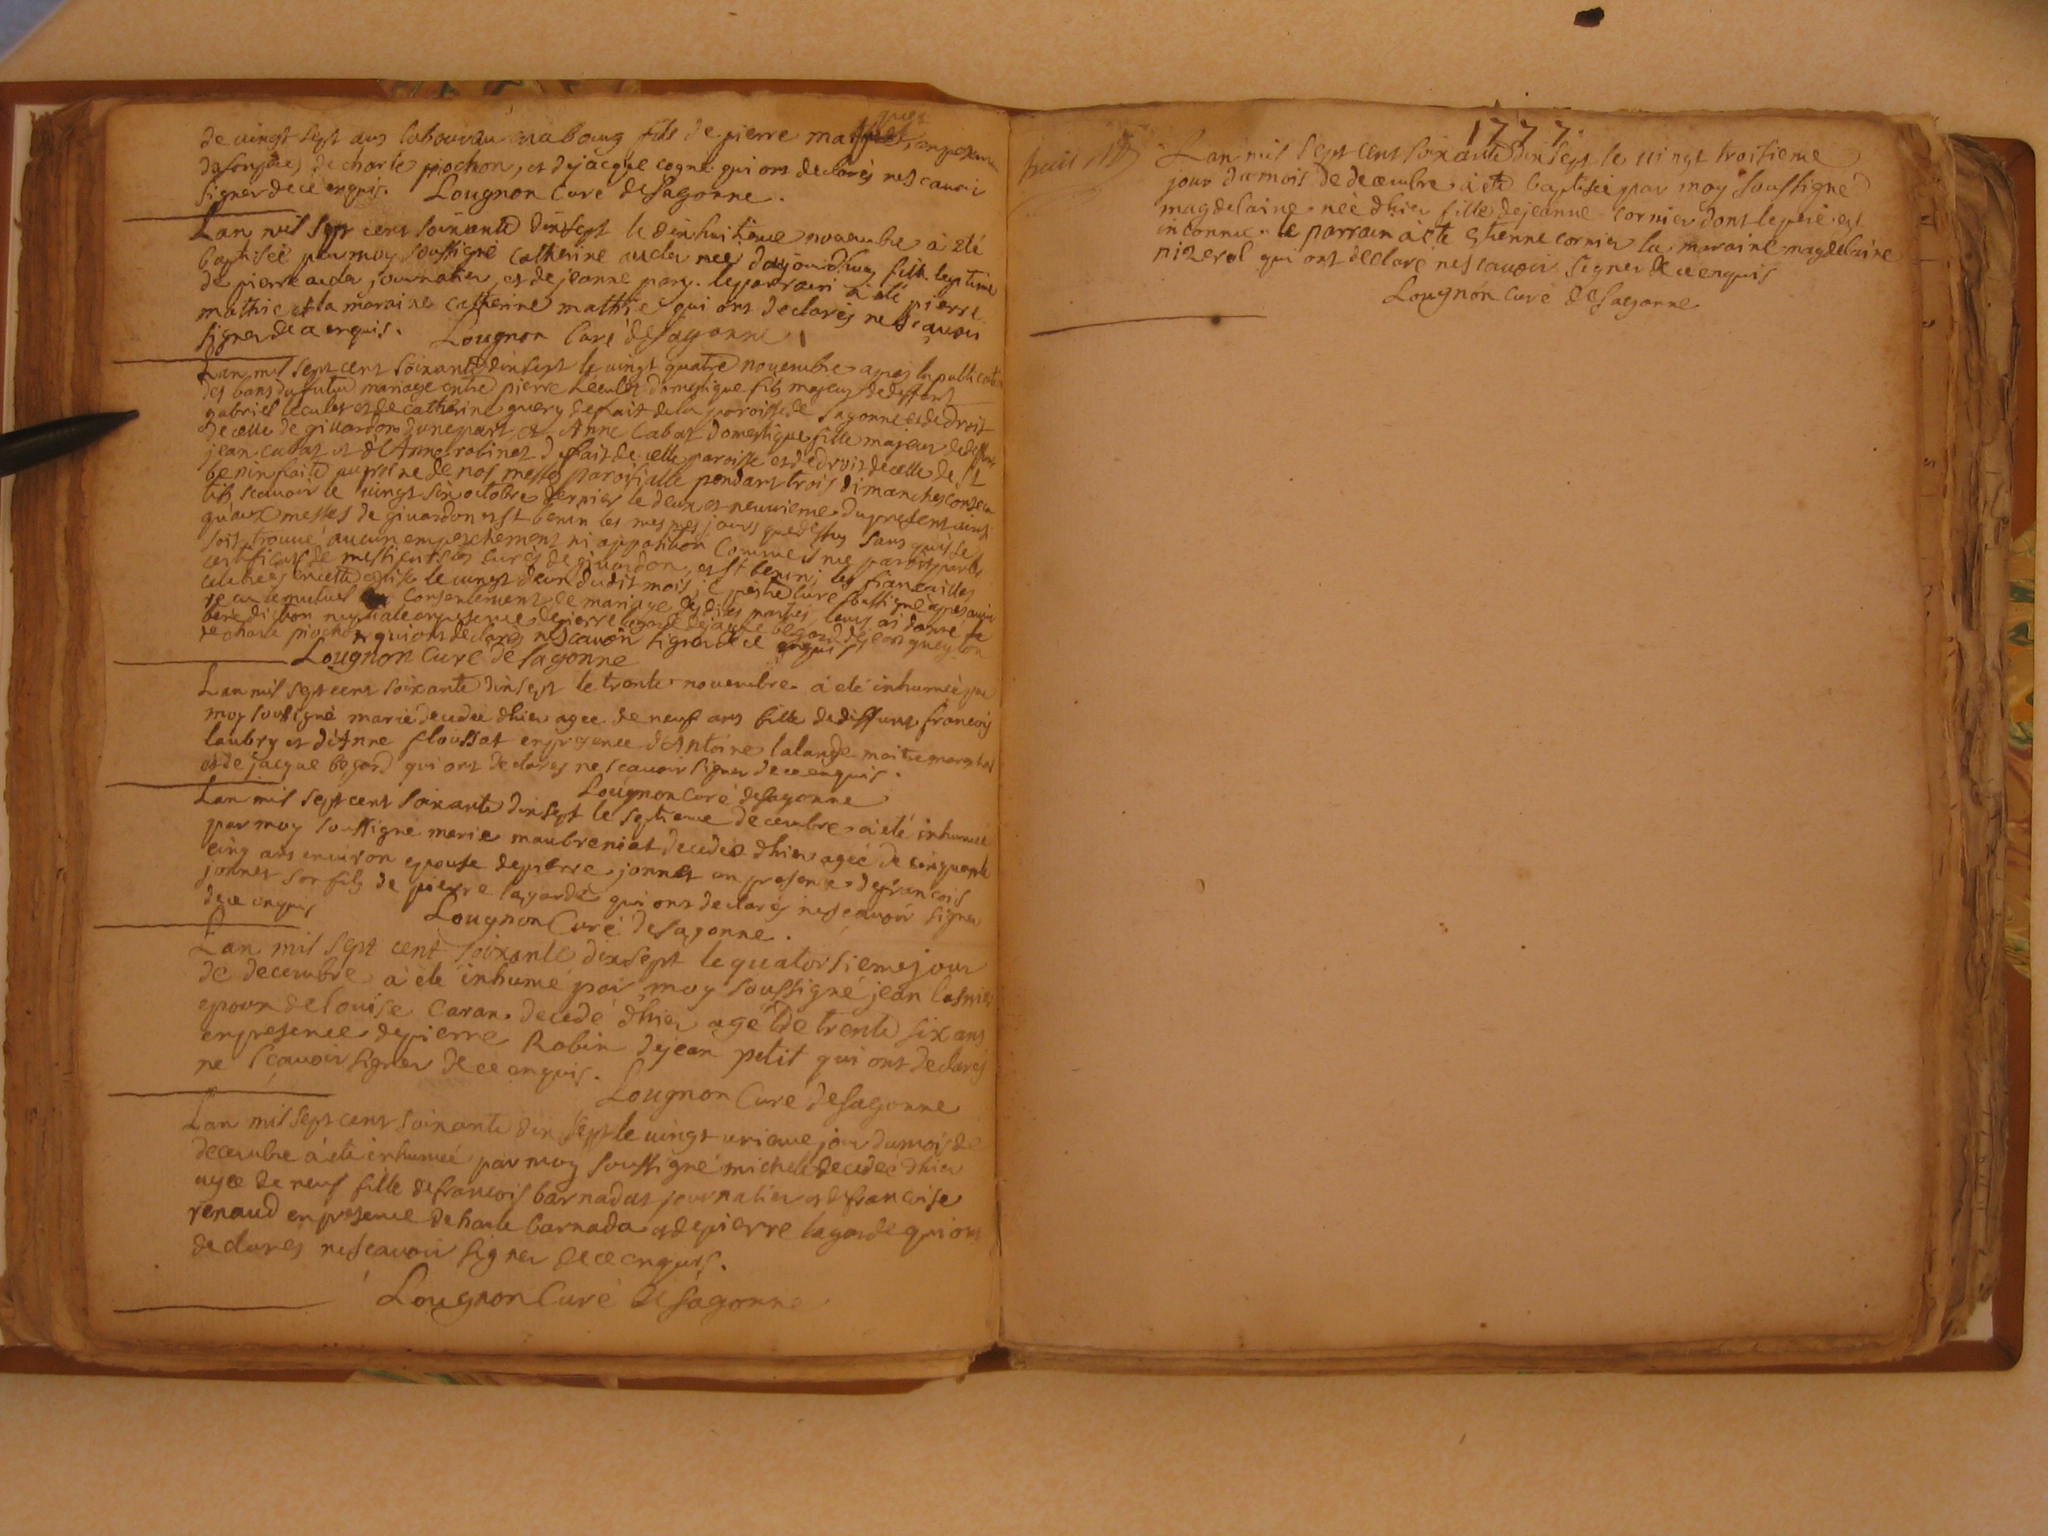 de vingt sept ans laboureur au bourg fils de pierre
de charle piochon, et de jacque cogne qui ont declarés ne scavoir
signer de ce enquis. Lougnon Curé de Sagonne.
Lan mil sept cent soixante dixsept le dixhuitieme novembre à été
baptisée par moy soussigné catherine aucler née d'aujourdhuy fille legitime
de pierre aucler journalier, et de jeanne parg. le parrain à été pierre
mathie et la maraine catherine mathie qui ont declarés ne scavoir
signer de ce enquis. Lougnon Curé de Sagonne
Lan mil sept cent soixante dixsept le vingt quatre novembre apres la publication
des bans du futur mariage entre pierre Leculer domestique fils majeur de deffunt
gabriel leculer et de catherine guery de fait de la paroisse de Sagonne et de droit
de celle de givardon d'unepart, et Anne Cabat domestique fille majeur de deffunt
jean cabat et d'Anne robinet de fait de cette paroisse et de droit de celle de St
benin faite au prosne de nos messes paroisialle pendant trois dimanches consecu
tifs scavoir le vingt six octobre dernier le deux et neuvieme du present ainsi
qu'aux messes de givardon et St benin les mesmes jours que dessus sans qu'il se
soit trouvé aucun empeschement ni opposition comme il nous paroit par les
certificats de messieurs les curés de givardon, et St benin; les fiancailles
celebrées en cette eglise le vingt deux dudit mois; je prestre curé soussigné apres avoir
receu le mutuel consentement de mariage des dites parties leurs ai donné la
benediction nuptiale en presence de pierre de jacque begard de jean
de charle piochon qui ont declarés ne scavoir signer de ce enquis
Lougnon Curé de Sagonne
Lan mil sept cent soixante dixsept le trente novembre à été inhumée par
moy soussigné marie decedée dhier agée de neuf ans fille de deffunt francois
laubry et d'Anne floussat en presence d'Antoine lalande maitre marechal
et de jacque begard qui ont declarés ne scavoir signer de ce enquis.
Lougnon Curé de Sagonne
Lan mil sept cent soixante dixsept le septieme decembre à été inhumée
par moy soussigné marie maubreniat decedée dhier agée de cinquante
cinq ans environ epouse de pierre jonnet en presence de francois
jonnet son fils de pierre lagarde qui ont declarés ne scavoir signer
de ce enquis Lougnon Curé de Sagonne.
Lan mil sept cent soixante dixsept le quatorsieme jour
de decembre à été inhumé par moy soussigné jean
epoux de louise caran decedé dhier agé de trente six ans
en presence de pierre Robin de jean petit qui ont declarés
ne scavoir signer de ce enquis.
Lougnon Curé de Sagonne
Lan mil sept cent soixante dix sept le vingt unieme jour du mois de
decembre à été inhumée par moy soussigné michele decedée dhier
agée de neuf fille de francois barnadat journalier et de francoise
renaud en presence de charle barnada et de pierre lagarde qui ont
declarés ne scavoir signer de ce enquis.
Lougnon Curé de Sagonne
1777.
Lan mil sept cent soixante dix sept le vingt troisieme
jour du mois de decembre à été baptisée par moy soussigné
magdelaine née dhier fille de jeanne cornier dont le pere est
inconnu. le parrain a été Etienne cornier la maraine magdelaine
pizerol qui ont declare ne scavoir signer de ce enquis
Lougnon Curé de Sagonne